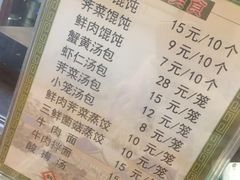 食
馄饨 15元/10个
荠菜馄饨 9元/10个
鲜肉馄饨 7元/10个
蟹黄汤包 28元/笼
虾仁汤包 15元/笼
荠菜汤包 12元/笼
小笼汤包 10元/笼
鲜肉荠菜蒸饺 15元/笼
三鲜菌菇蒸饺 15
牛肉面
牛肉拌
酸辣汤